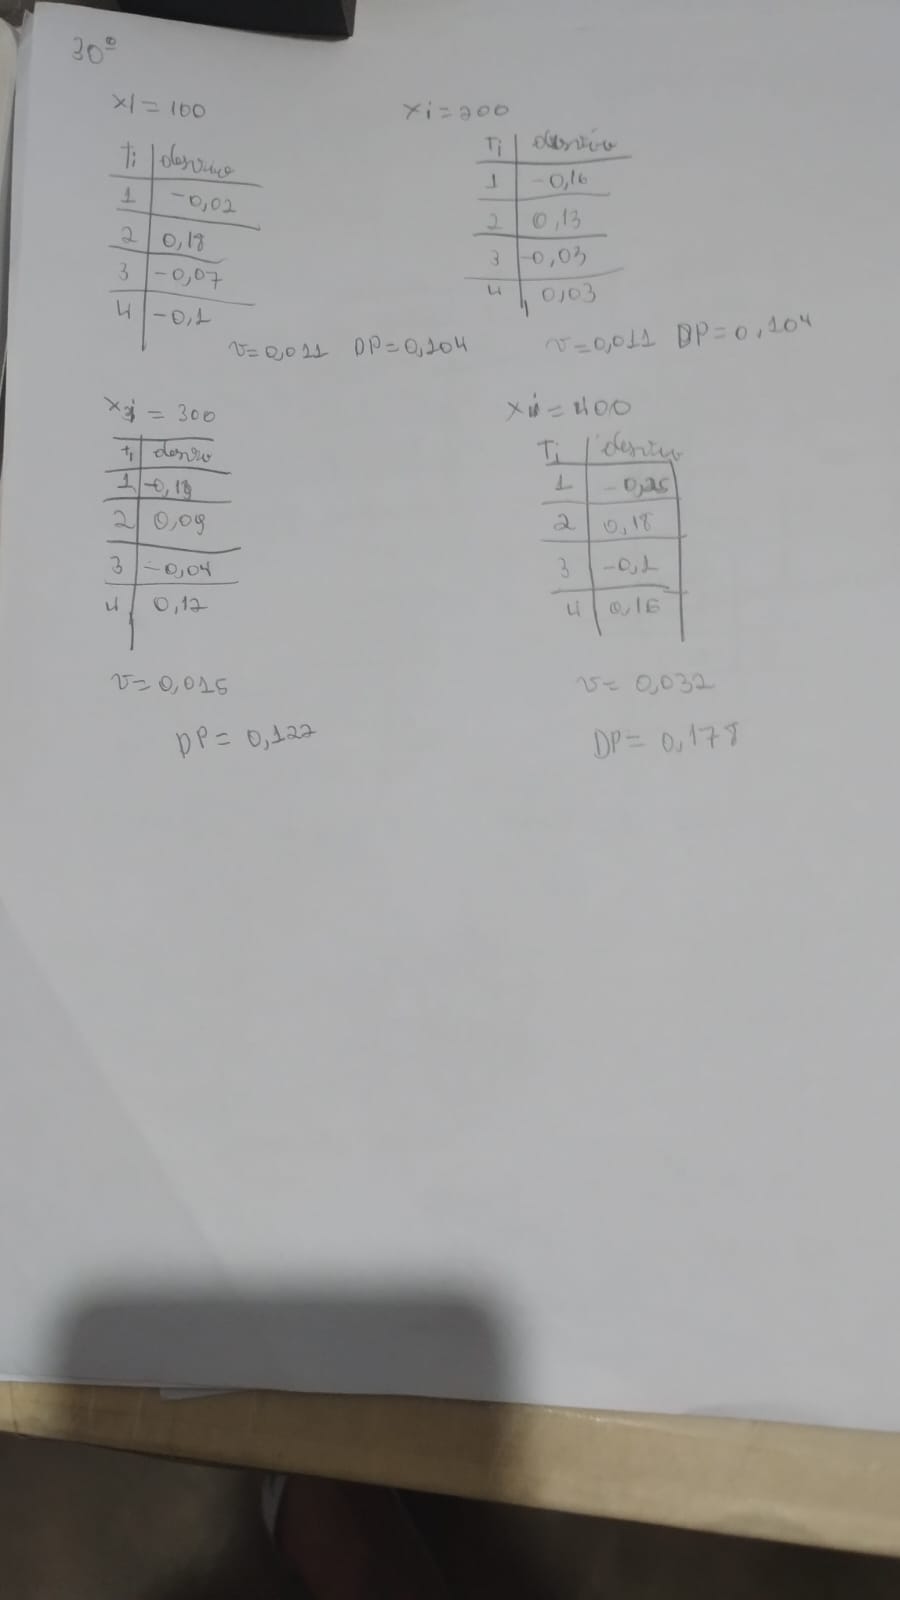 30º
xi = 100
Ti desvio
1 -0,02
2 0,18
3 -0,07
4 -0,1
v=0,011 DP=0,104
xi=200
Ti desvio
1 -0,16
2 0,13
3 -0,03
4 0,03
v=0,011 DP=0,104
xi = 300
ti desvio
1 -0,18
2 0,09
3 -0,04
4 0,12
v=0,015
DP= 0,122
xi=400
Ti desvio
1 -0,25
2 0,18
3 -0,1
4 0,16
v= 0,032
DP= 0,178